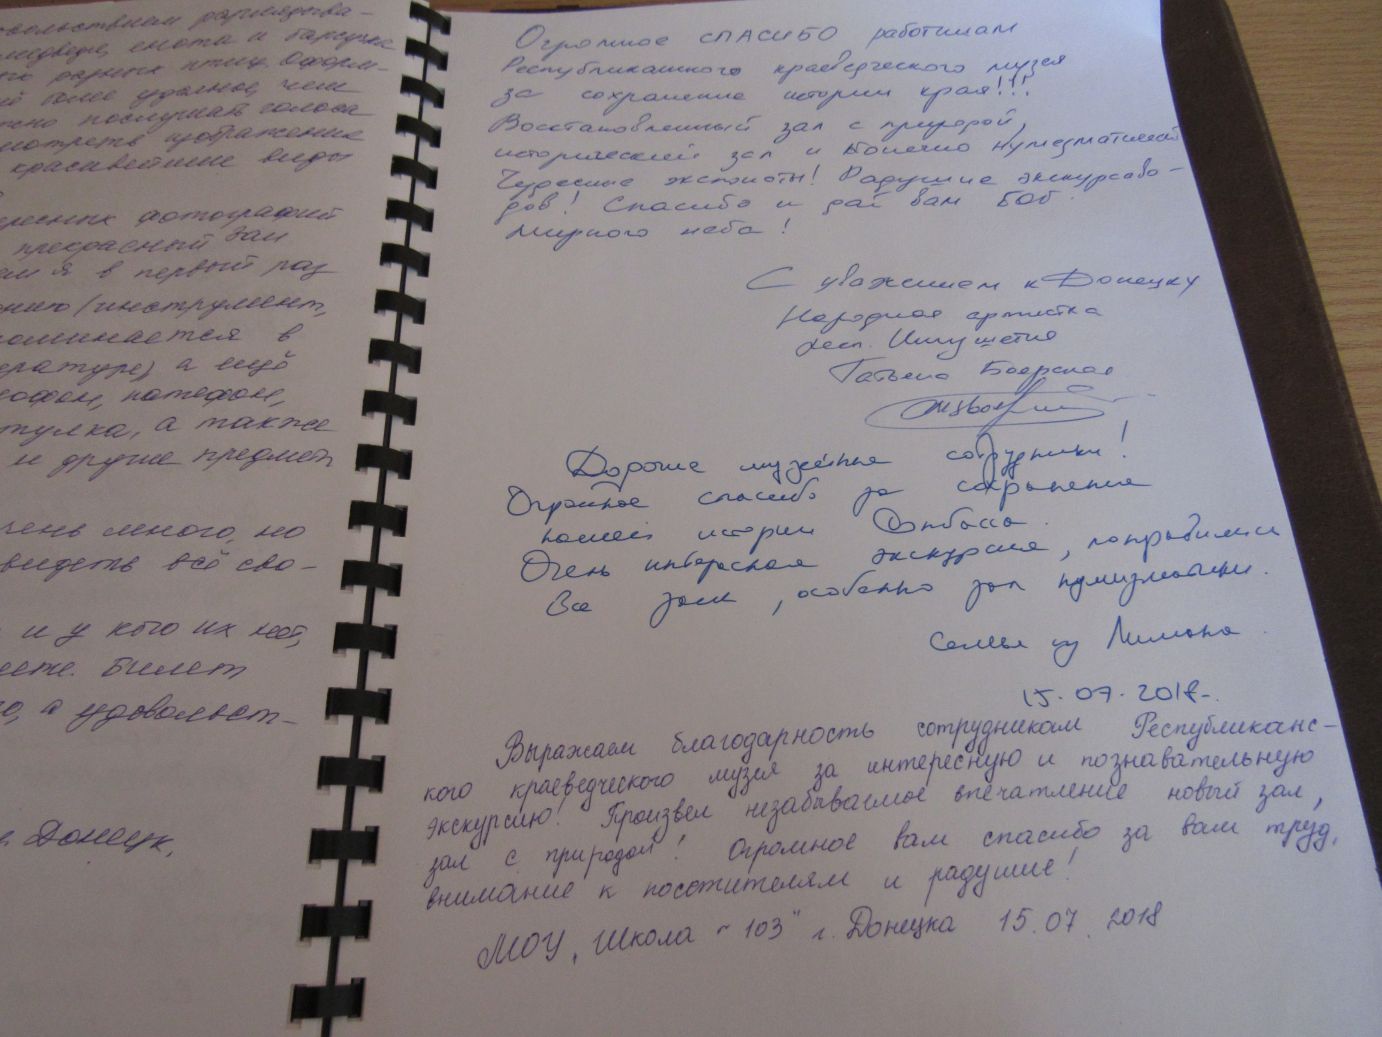 довольствием разглядыва-
медведя, енота и барсука
разных птиц. Оформ-
более удачное, чем
можно послушать голоса
смотреть изображение
красивейшие виды
интересных фотографий
прекрасный зал
я в первый раз
(инструмент,
поминается в
литературе) а ещё
патефон,
шкатулка, а также
и другие предмет
очень много, но
видеть всё сво-
и у кого их нет,
Билет
а удовольст-
г. Донецк.
Огромное СПАСИБО работникам
Республиканского краеведческого музея
за сохранение истории края!!!
Восстановленный зал с природой,
исторический зал и конечно нумизматический
Чудесные экспонаты! Радушие экскурсово-
дов! Спасибо и дай вам Бог.
Мирного неба!
С уважением к Донецку
Народная артистка
респ. Ингушетия
Татьяна Боярская
Дорогие музейные сотрудники!
Огромное спасибо за сохранение
нашей истории Донбасса.
Очень интересная экскурсия, понравились
Все залы, особенно зал нумизматики.
Семья из Лимана.
15.07.2018.
Выражаем благодарность сотрудникам Республиканс-
кого краеведческого музея за интересную и познавательную
экскурсию! Произвёл незабываемое впечатление новый зал,
зал с природой! Огромное вам спасибо за вам труд,
внимание к посетителям и радушие!
МОУ „Школа - 103" г. Донецка 15.07.2018